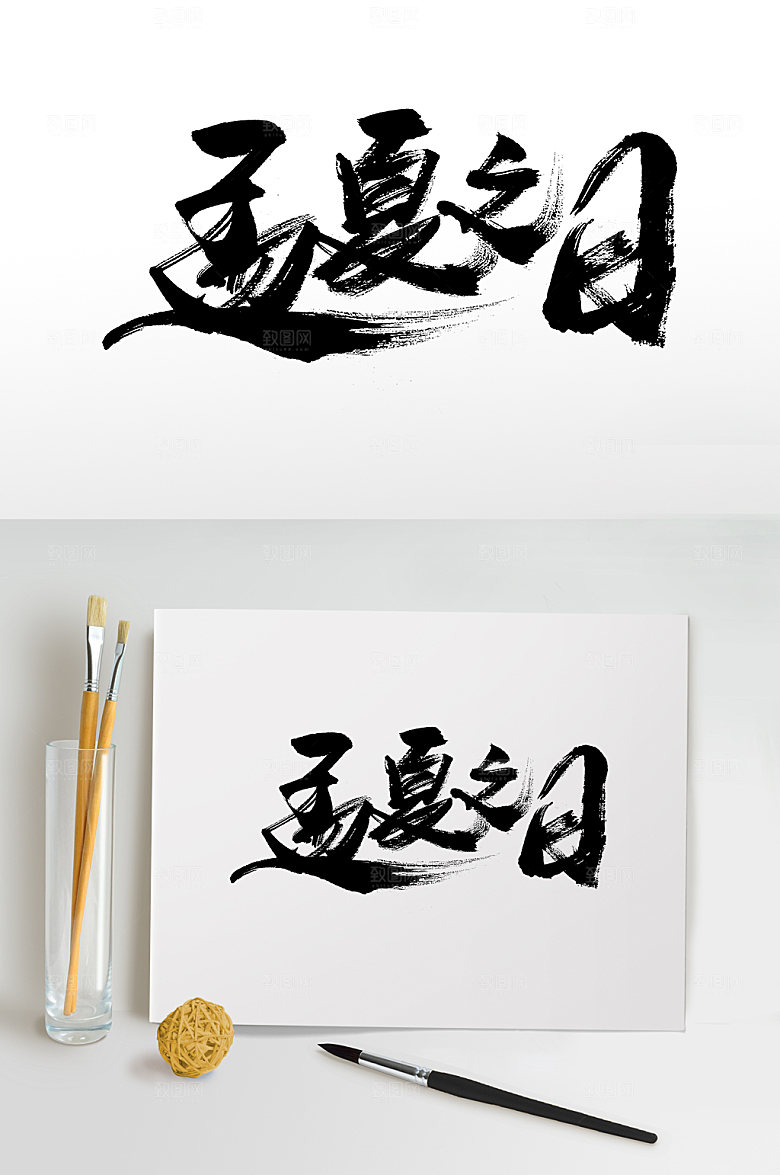 孟夏之日
孟夏之日
致图网